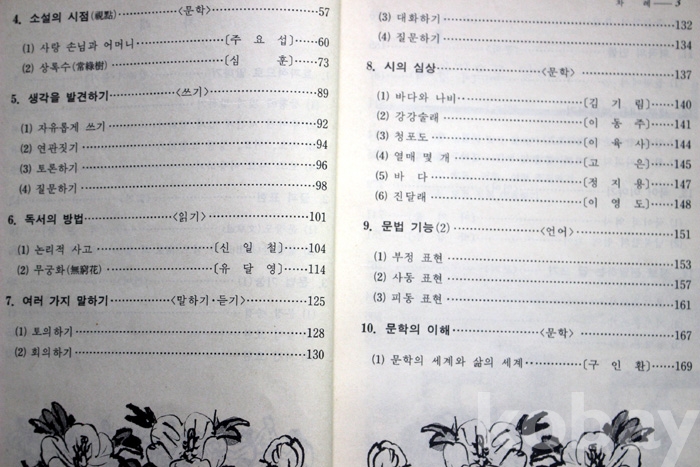 4. 소설의 시점(視點)··················〈문학〉··················57
(1) 사랑 손님과 어머니··················〔주 요 섭〕······60
(2) 상록수(常綠樹)··················〔심 훈〕······73
5. 생각을 발견하기··················〈쓰기〉··················89
(1) 자유롭게 쓰기··················92
(2) 연관짓기··················94
(3) 토론하기··················96
(4) 질문하기··················98
6. 독서의 방법··················〈읽기〉··················101
(1) 논리적 사고··················〔신 일 철〕······104
(2) 무궁화(無窮花)··················〔유 달 영〕······114
7. 여러 가지 말하기··················〈말하기·듣기〉··················125
(1) 토의하기··················128
(2) 회의하기··················130
차 례—3
(3) 대화하기··················132
(4) 질문하기··················134
8. 시의 심상··················〈문학〉··················137
(1) 바다와 나비··················〔김 기 림〕······140
(2) 강강술래··················〔이 동 주〕······141
(3) 청포도··················〔이 육 사〕······144
(4) 열매 몇 개··················〔고 은〕······145
(5) 바 다··················〔정 지 용〕······147
(6) 진달래··················〔이 영 도〕······148
9. 문법 기능(2)··················〈언어〉··················151
(1) 부정 표현··················153
(2) 사동 표현··················157
(3) 피동 표현··················161
10. 문학의 이해··················〈문학〉··················167
(1) 문학의 세계와 삶의 세계··················〔구 인 환〕······169
kobay